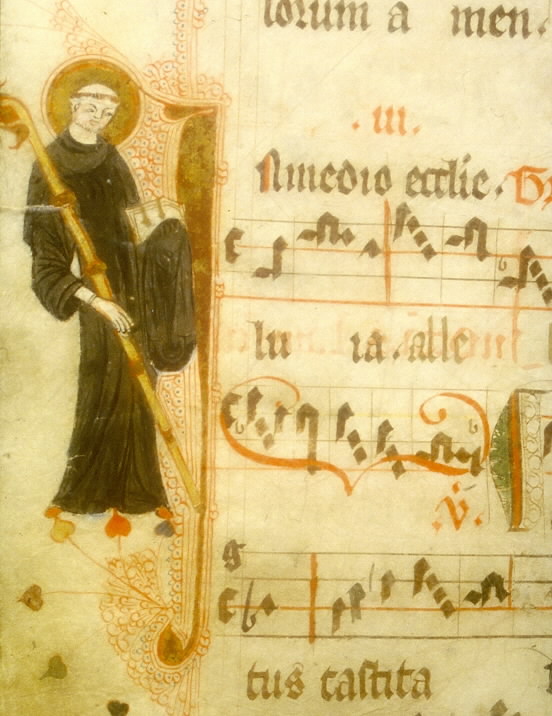 lorum a men
.iii.
In medio ecclie.
lu ia.alle
.v.
tus castita